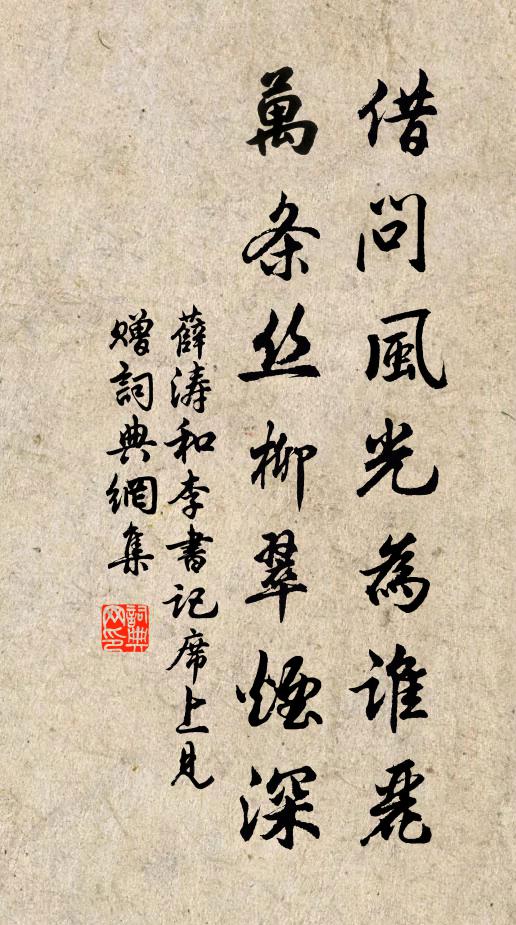 借问風光為谁麗
萬条丝柳翠煙深
薛涛和李書记席上見
赠詞典網集
詞典网印